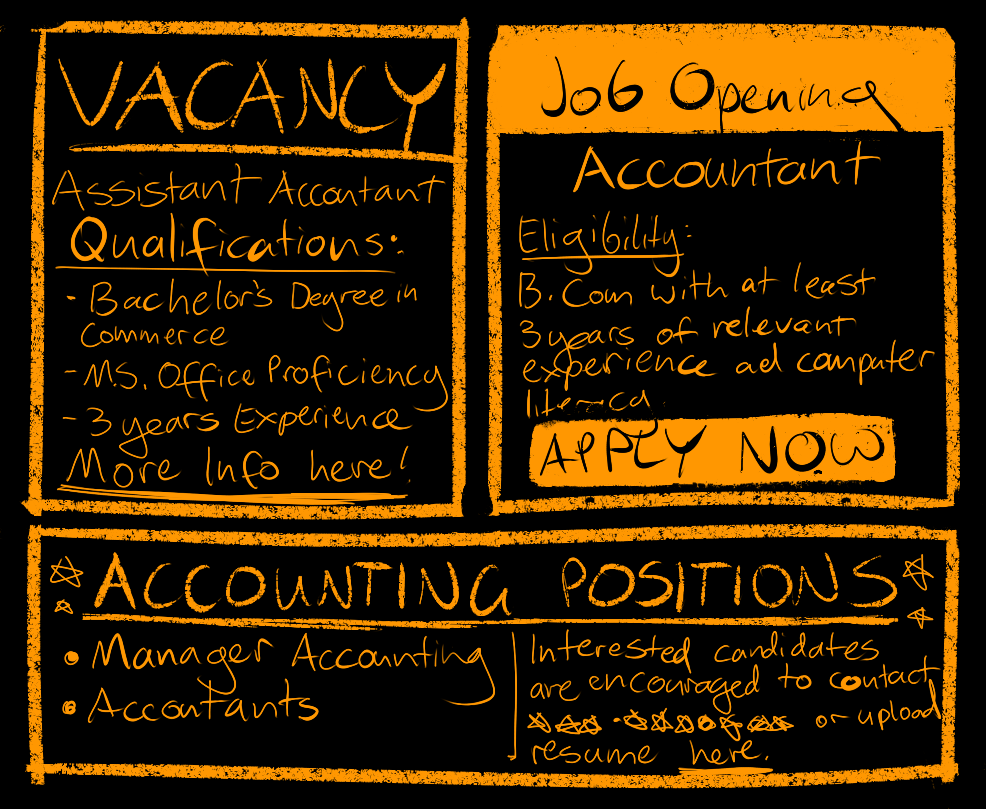 VACANCY
Assistant Accontant
Qualifications:
- Bachelor's Degree in
Commerce
- M.S. Office Proficiency
- 3 years Experience
More Info here!
Job Opening
Accountant
Eligibility:
B. Com with at least
3 years of relevant
experience ad computer
APPLY NOW
ACCOUNTING POSITIONS
• Manager Accounting
• Accontants
Interested candidates
are encouraged to contact
or upload
resume here.